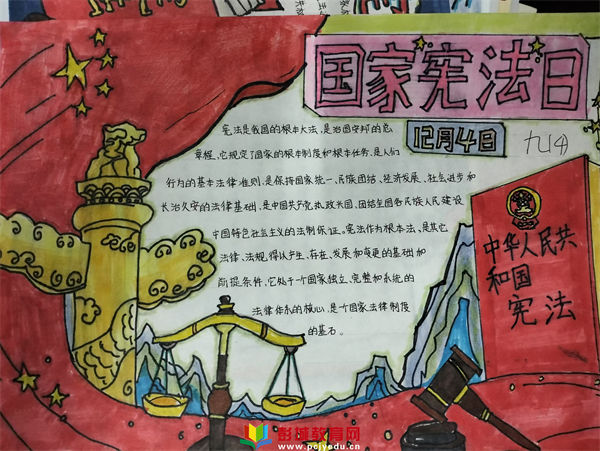 国家宪法日
12月4日
九(4)
宪法是我国的根本大法,是治国安邦的总
章程,它规定了国家的根本制度和根本任务,是人们
行为的基本法律准则,是保持国家统一、民族团结、经济发展、社会进步和
长治久安的法律基础,是中国共产党执政兴国、团结全国各民族人民建设
中国特色社会主义的法制保证。宪法作为根本法,是其它
法律、法规得以产生、存在、发展和变更的基础和
前提条件,它处于一个国家独立、完整和系统的
法律体系的核心,是一个国家法律制度
的基石。
中华人民共
和国
宪法
彭城教育网
www.pcjyedu.cn